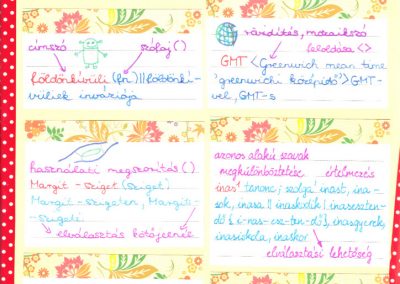 címszó szófaj ( )
földönkívüli (fn.) || földönkí-
vüliek inváziója
rövidítés, mozaikszó
feloldása < >
GMT < Greenwich mean time
'greenwichi középidő' > GMT-
vel, GMT-s
használati megszorítás ( )
Margit-sziget (sziget)
Margit-szigeten, Margit-
-szigeti
elválasztás kötőjelnél
azonos alakú szavak
megkülönböztetése értelmezés
inas¹ tanonc; szolga inast, ina-
sok, inasa || inaskodik | inaseszten-
dő {i-nas-esz-ten-dő}, inasgyerek,
inasiskola, inaskor
elválasztási lehetőség